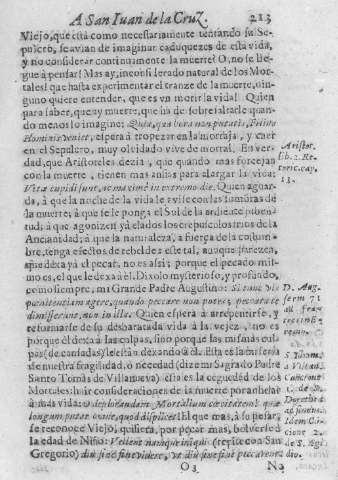 A San Iuan de la Cruz. 213
Viejo, que està como necessariamente tentando su Se-
pulcro, se avian de imaginar caduquezes de esta vida,
y no considerar continuamente la muerte! O, no se lle-
gue à pensar! Mas ay, inconsiderado natural de los Mor-
tales! que hasta experimentar el tranze de la muerte, nin-
guno quiere entender, que es vn morir la vida! Quien
para saber, que ay muerte, que ha de sobresaltarle quan-
do menos lo imagine: Quia, qua hora non putatis, Filius
Hominis veniet, espera à tropezar en la mortaja, y caer
en el Sepulcro, muy olvidado vive de mortal. En ver-
dad, que Aristoteles dezia, que quando mas forcejan
con la muerte, tienen mas ansias para alargar la vida:
Vitæ cupidi sunt, ac maximè in extremo die. Quien aguar-
da, à que la noche de la vida le vise con las sombras de
la muerte; à que se le ponga el Sol de la ardiente juben-
tud; à que agonizen yà elados los crepusculos trios de la
Ancianidad; à que la naturaleza, à fuerça de la costum-
bre, tenga efectos de rebelde; este tal, aunque parezca,
que dexa yà el pecar, no es assi; porque el pecado mis-
mo, es el que le dexa à èl. Dixolo mysterioso, y profundo,
como siempre, mi Grande Padre Augustino: Si tunc vis
pœnitentiam agere, quando peccare non potes; peccata te
dimisserunt, non tu illa. Quien espera à arrepentirse, y
reformarse de su desbaratada vida à la vejez, no es
porque èl dexa à las culpas, sino porque las mismas cul-
pas (de cansadas) le estàn dexando à èl. Esta es la miseria
de nuestra fragilidad, ò necedad (dize mi Sagrado Padre
Santo Tomàs de Villanueva) esta es la ceguedad de los
Mortales: huir consideraciones de la muerte por anhelar
à mas vida:
longum putat omne, quod displicet! El que mas, à su pesar,
se reconoce Viejo, quisiera, por pecar mas, bolverse à
la edad de Niño: Vellent namque iniqui (repite con San
Gregorio) diu sine fine vivere, vt diu sine fine peccarent
O3 No
Aristot.
lib. 2. Re-
toric. cap.
13.
D. Aug.
serm. 71
ad frat.
S. Thom.
à Villan.
Concione
Idem Con-
cione 2.
de S. Aug.